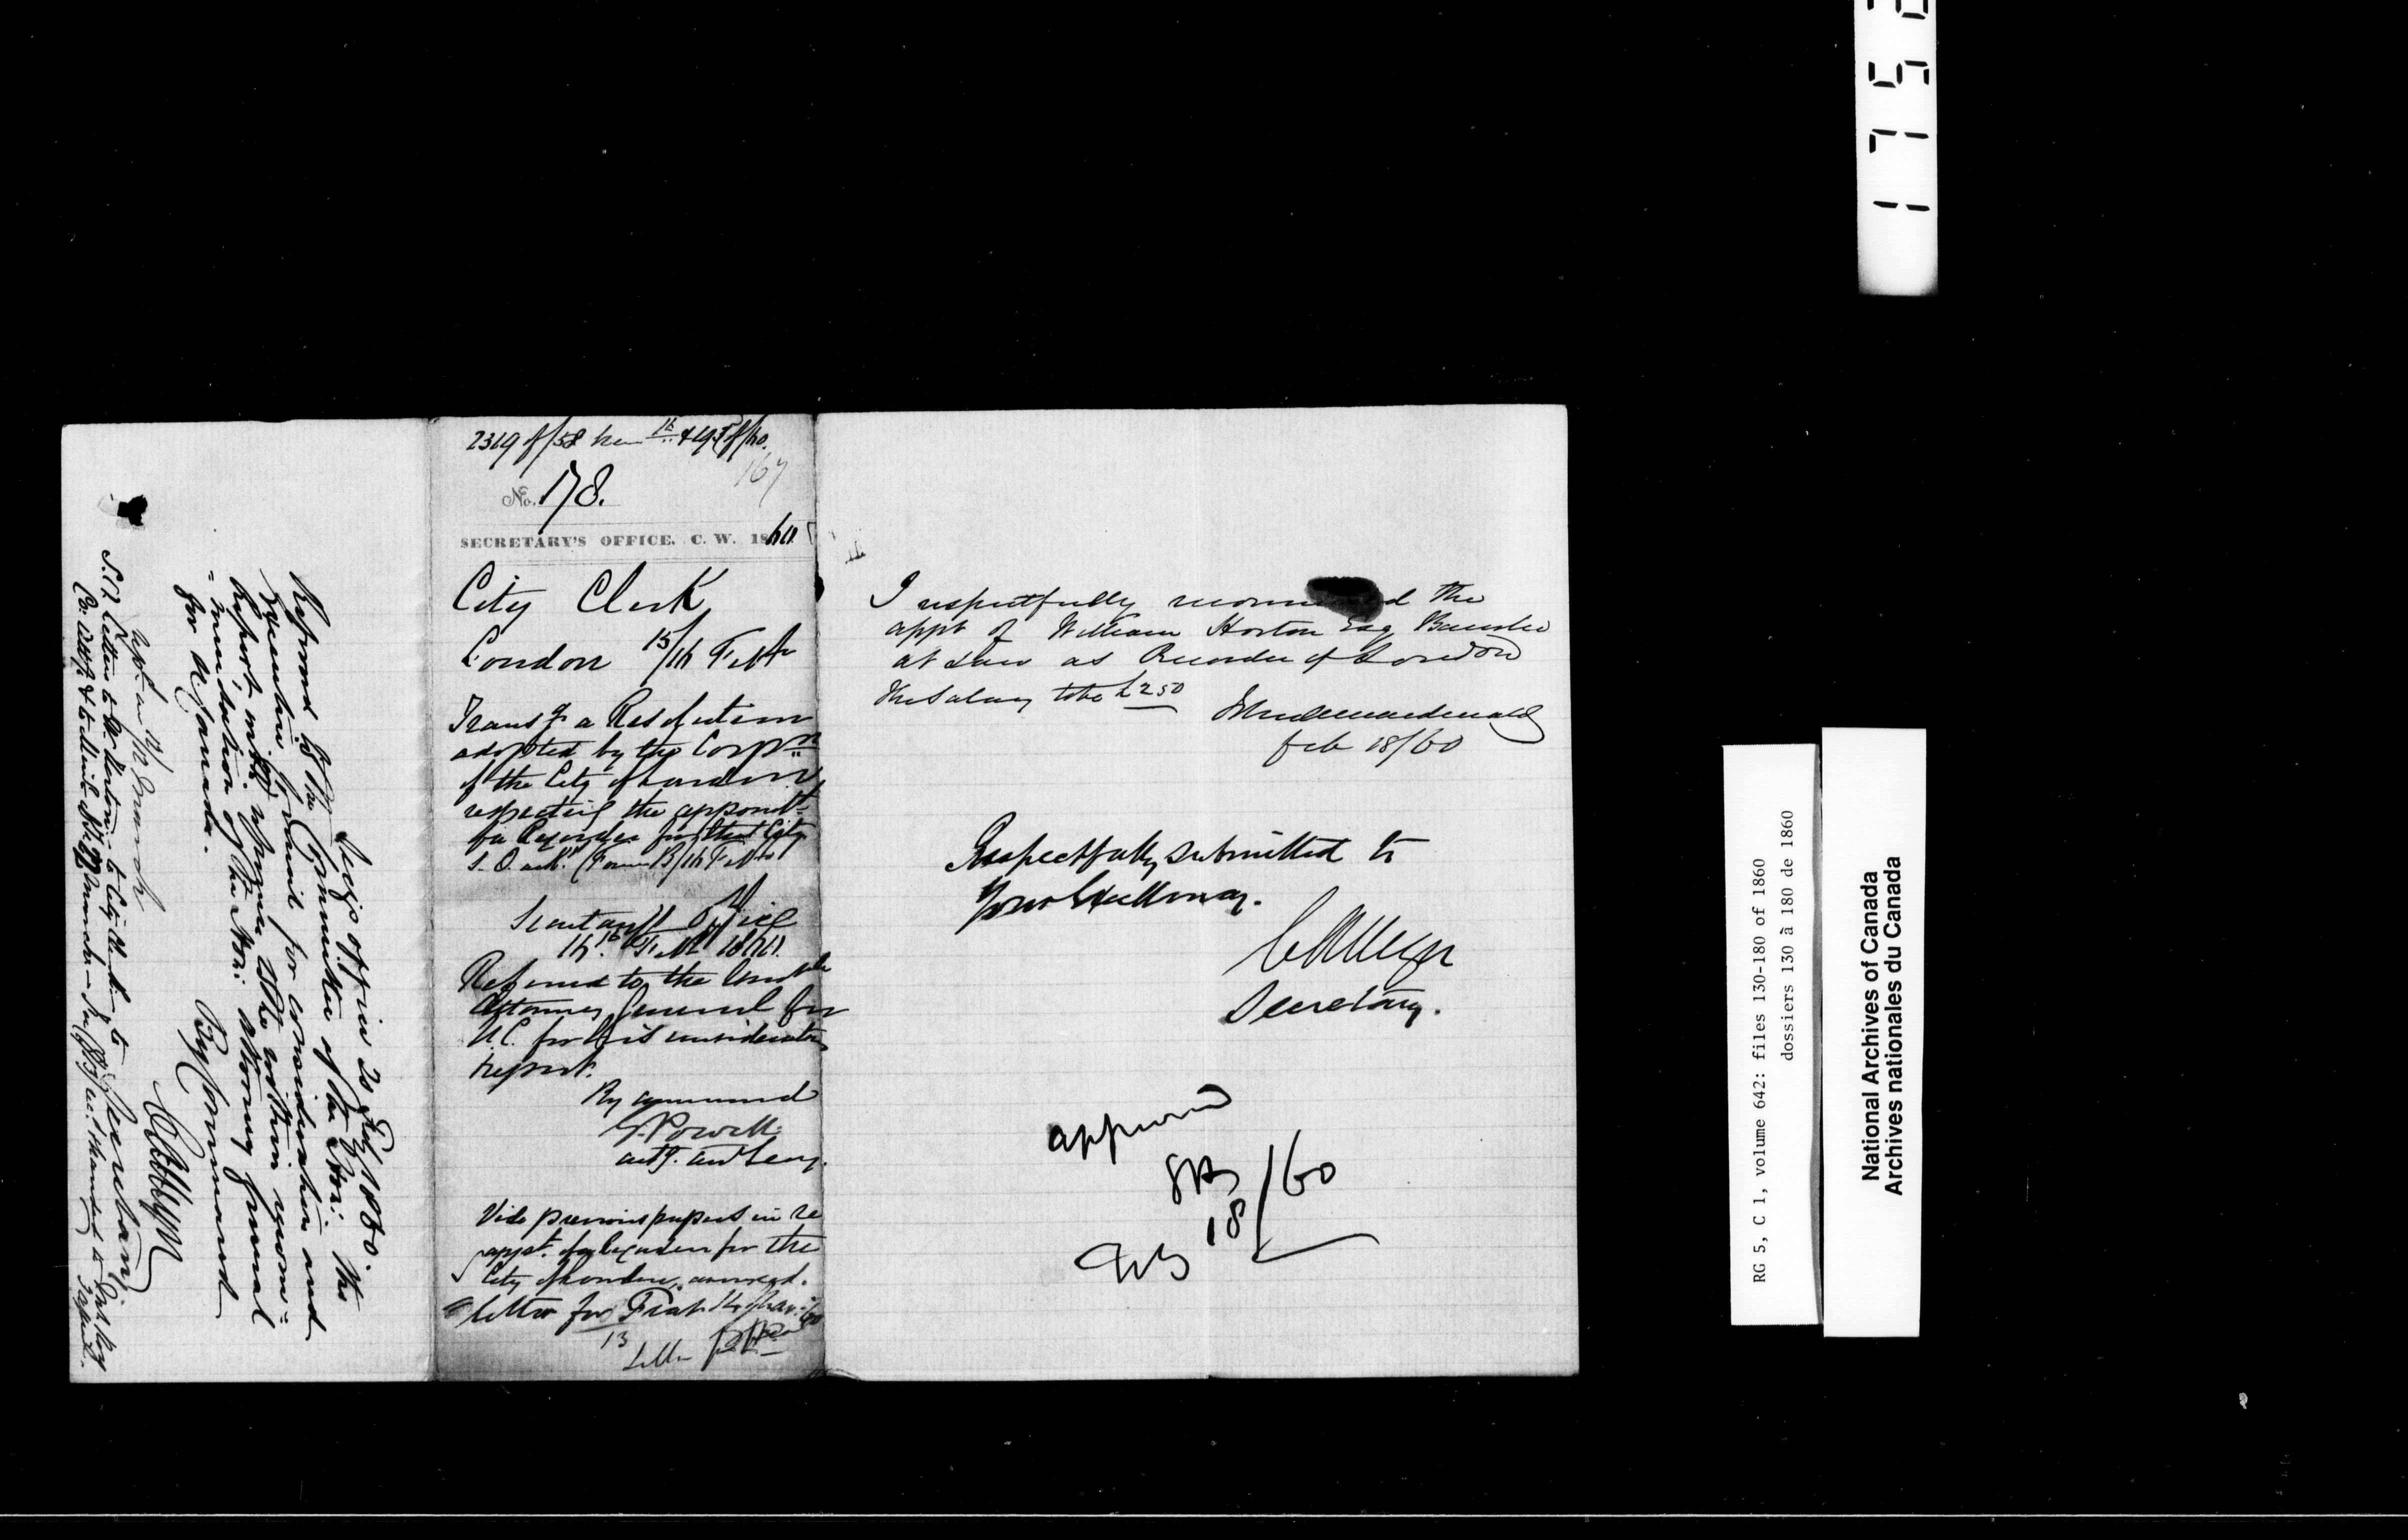 2319 of/58
167
No. 178.
SECRETARY'S OFFICE. C. W. 1860
City Clerk
London 15/16 Feby
Transg a Resolution
adopted by the Corpn
of the City of London
respecting the appointt
of a Recorder for that City
Secretary's Office
16th Feby 1860.
Referred to the Honble
Attorney General for
U.C. for his consideration
& report.
By command
G Powell
actg. asst Secy.
Vide previous papers in re
appt. of a Recorder for the
City of London, annexed.
letter for Fiat
13
I respectfully recommend the
appt of William Horton Esq Barrister
at Law as Recorder of London
the Salary to be £250
John A Macdonald
feb 18/60
Respectfully submitted to
Your Excellency.
C Alleyn
Secretary.
approved
Feb 18/60
Secy's office 20 Feby 1860.
Referred to the Committee of the Hon: the
Executive Council for consideration and
Report, with papers & the within recom=
=mendation of the Hon: Attorney General
for U. Canada.
By Command
C Alleyn
Secretary
1752
RG 5, C 1, volume 642: files 130-180 of 1860
dossiers 130 à 180 de 1860
National Archives of Canada
Archives nationales du Canada